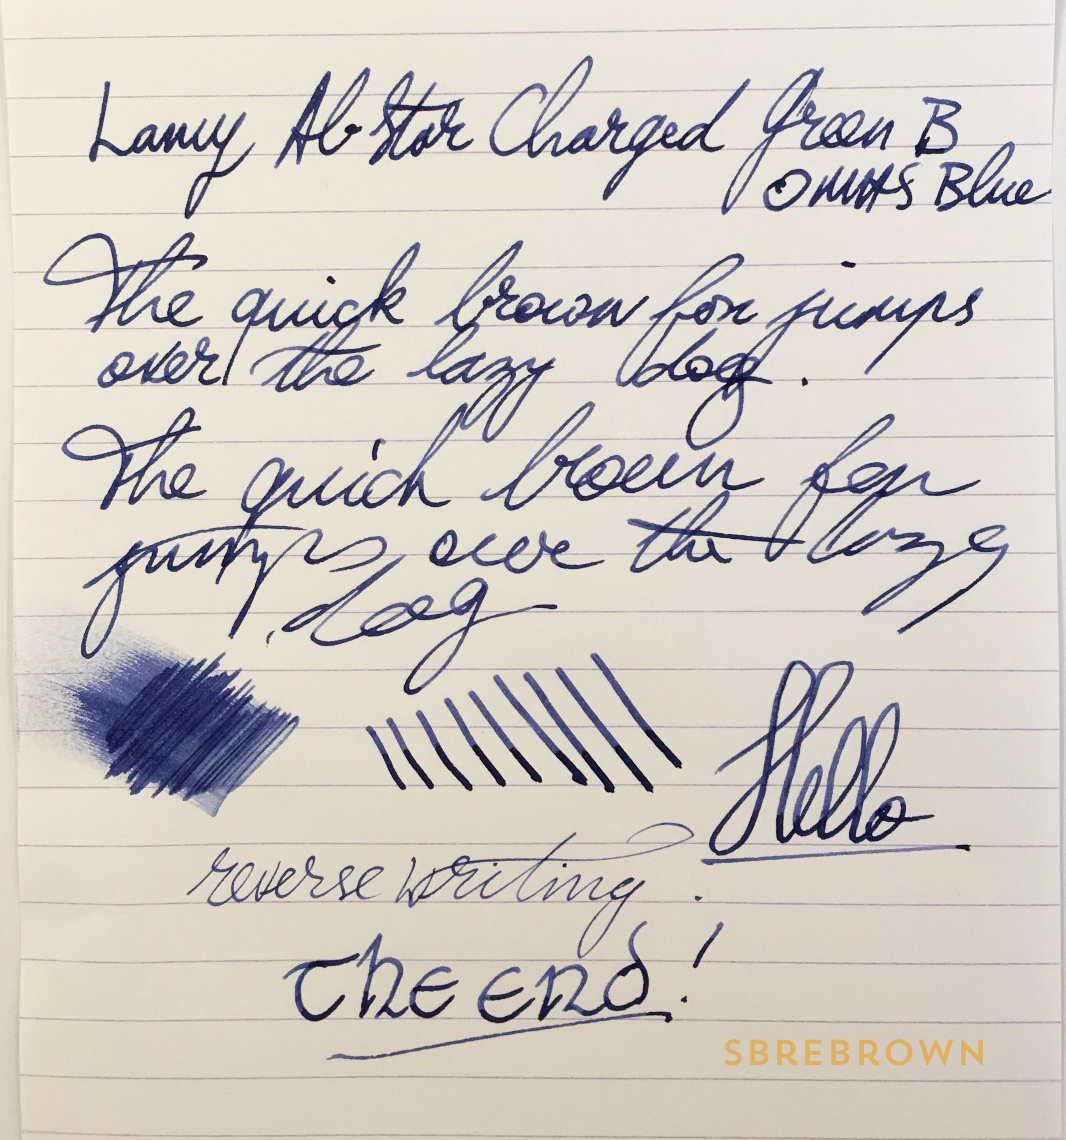 Lamy Al-Star Charged Green B
OMAS Blue
The quick brown fox jumps
over the lazy dog.
The quick brown fox
jumps over the lazy
dog
Hello
reverse writing.
The End!
SBREBROWN